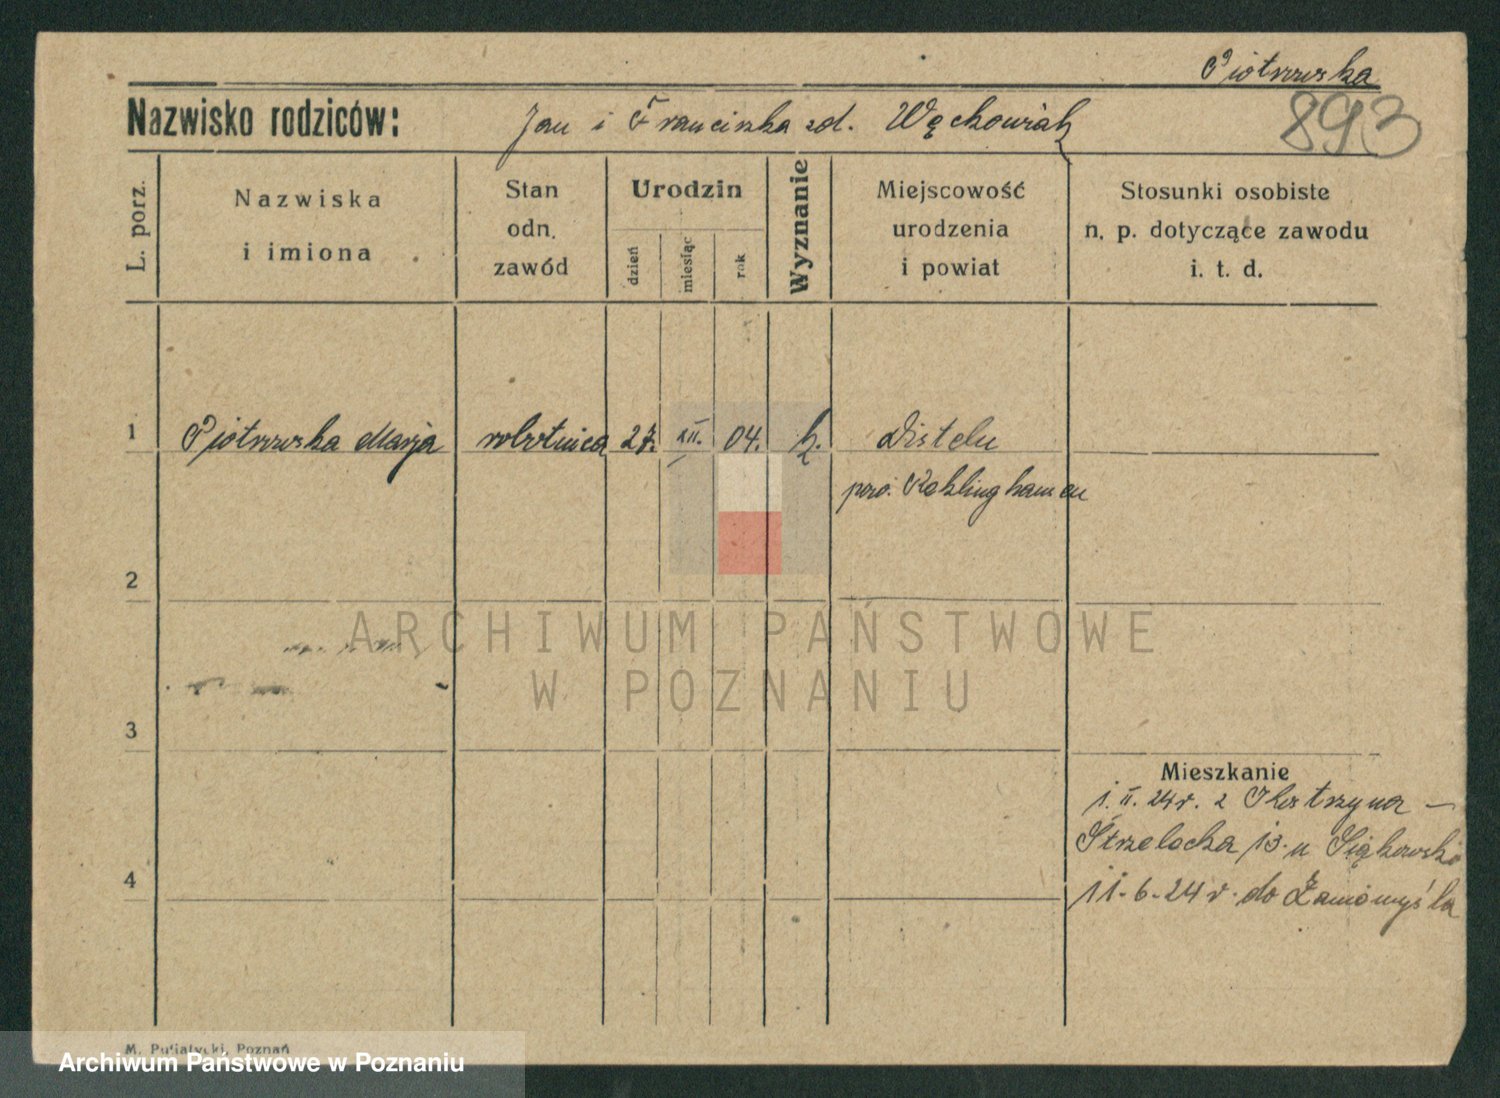 Piotrowska
893
Nazwisko rodziców:
Jan i Franciszka zd. Węchowiak
L. porz.
Nazwiska
i imiona
Stan
odn.
zawód
Urodzin
dzień
miesiąc
rok
Wyznanie
Miejscowość
urodzenia
i powiat
Stosunki osobiste
n. p. dotyczące zawodu
i. t. d.
1
Piotrowska Marja robotnica 27. 04. k. Disteln
pow. Reklinghamen
2
ARCHIWUM PAŃSTWOWE
W POZNANIU
3
Mieszkanie
1. II. 24 r. z Kostrzyna —
Strzelecka 13. u
4
11-6-24 r. do Zaniomyśla
M. Pufiatycki, Poznań
Archiwum Państwowe w Poznaniu